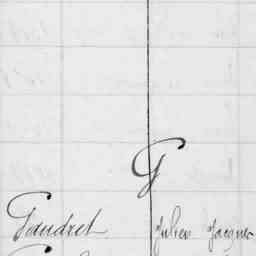 G
Gaudret Julien Jacques